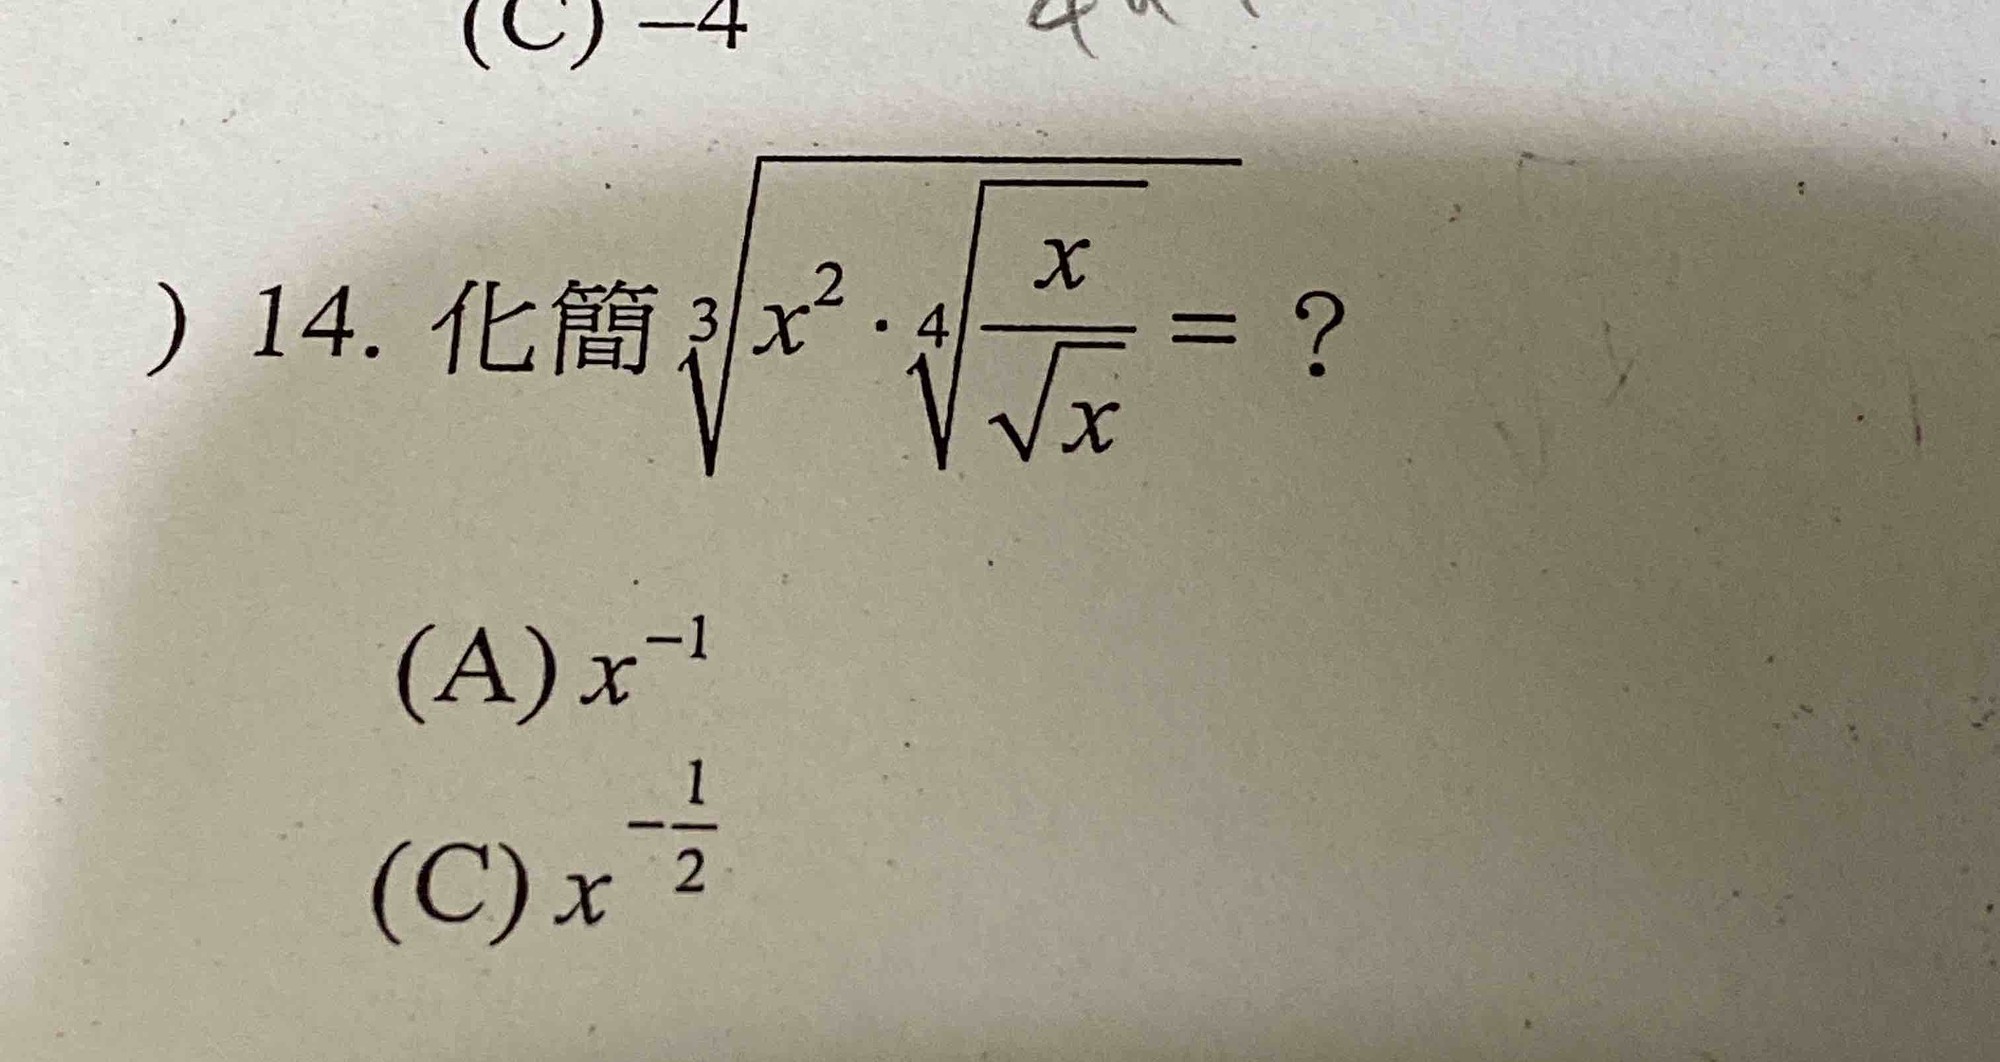 (C) –4
) 14. 化簡 ∛(x² · ∜(x/√x)) = ?
(A) x⁻¹
(C) x^(-1/2)